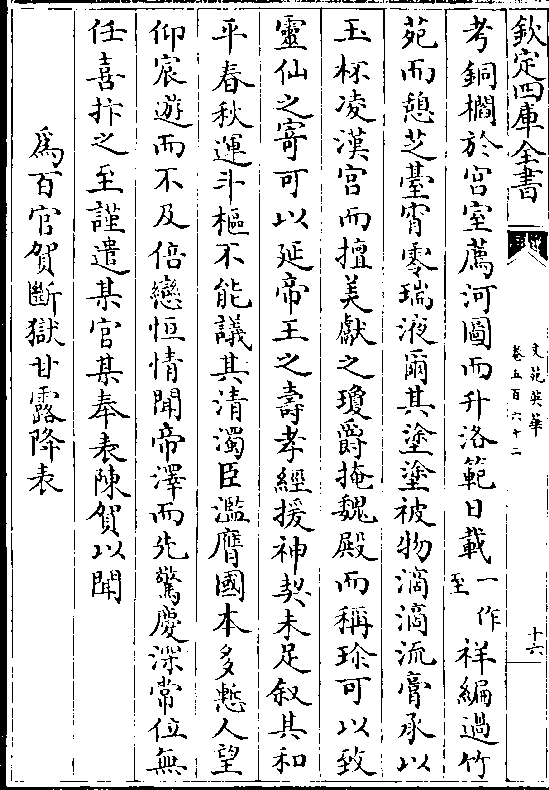 欽定四庫全書
文苑英華
卷五百六十二
十六
考銅櫚於宮室薦河圖而升洛範日載一作至祥編過竹
苑而憩芝臺宵零瑞液爾其塗塗被物滴滴流膏承以
玉杯凌漢宮而擅美獻之瓊爵掩魏殿而稱珍可以致
靈仙之寄可以延帝王之壽孝經援神契未足叙其和
平春秋運斗樞不能議其清濁臣濫膺國本多慙人望
仰宸遊而不及倍戀恒情聞帝澤而先驚慶深常位無
任喜抃之至謹遣某官某奉表陳賀以聞
爲百官賀斷獄甘露降表